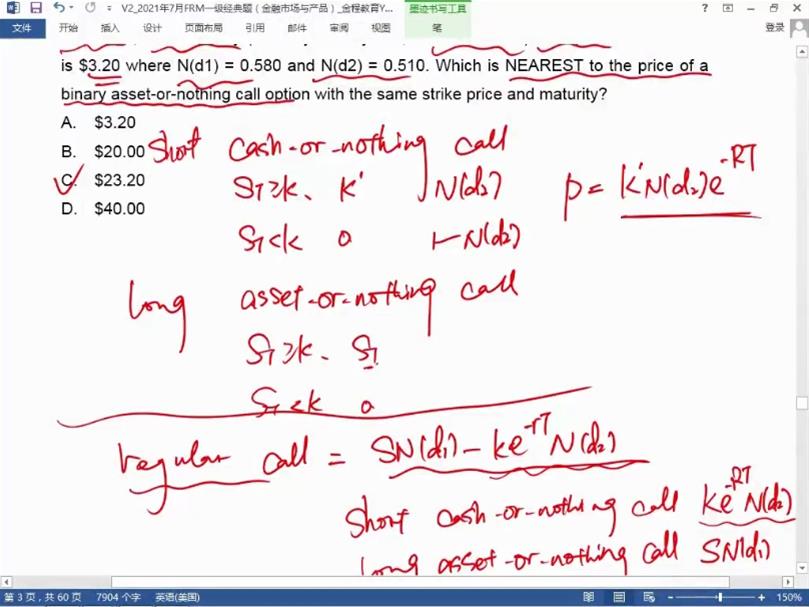 V2_2021年7月FRM一级经典题（金融市场与产品）_金程教育Y...
墨迹书写工具
登录
文件 开始 插入 设计 页面布局 引用 邮件 审阅 视图 笔
is $3.20 where N(d1) = 0.580 and N(d2) = 0.510. Which is NEAREST to the price of a
binary asset-or-nothing call option with the same strike price and maturity?
A. $3.20
B. $20.00
C. $23.20
D. $40.00
short cash-or-nothing call
S_T≥K、 K' N(d2)
S_T<K 0 1-N(d2)
P = K'N(d2)e^-RT
long asset-or-nothing call
S_T≥K、 S_T
S_T<K 0
regular call = SN(d1) - Ke^-rT N(d2)
short cash-or-nothing call Ke^-RT N(d2)
long asset-or-nothing call SN(d1)
第 3 页，共 60 页 7904 个字 英语(美国) 150%